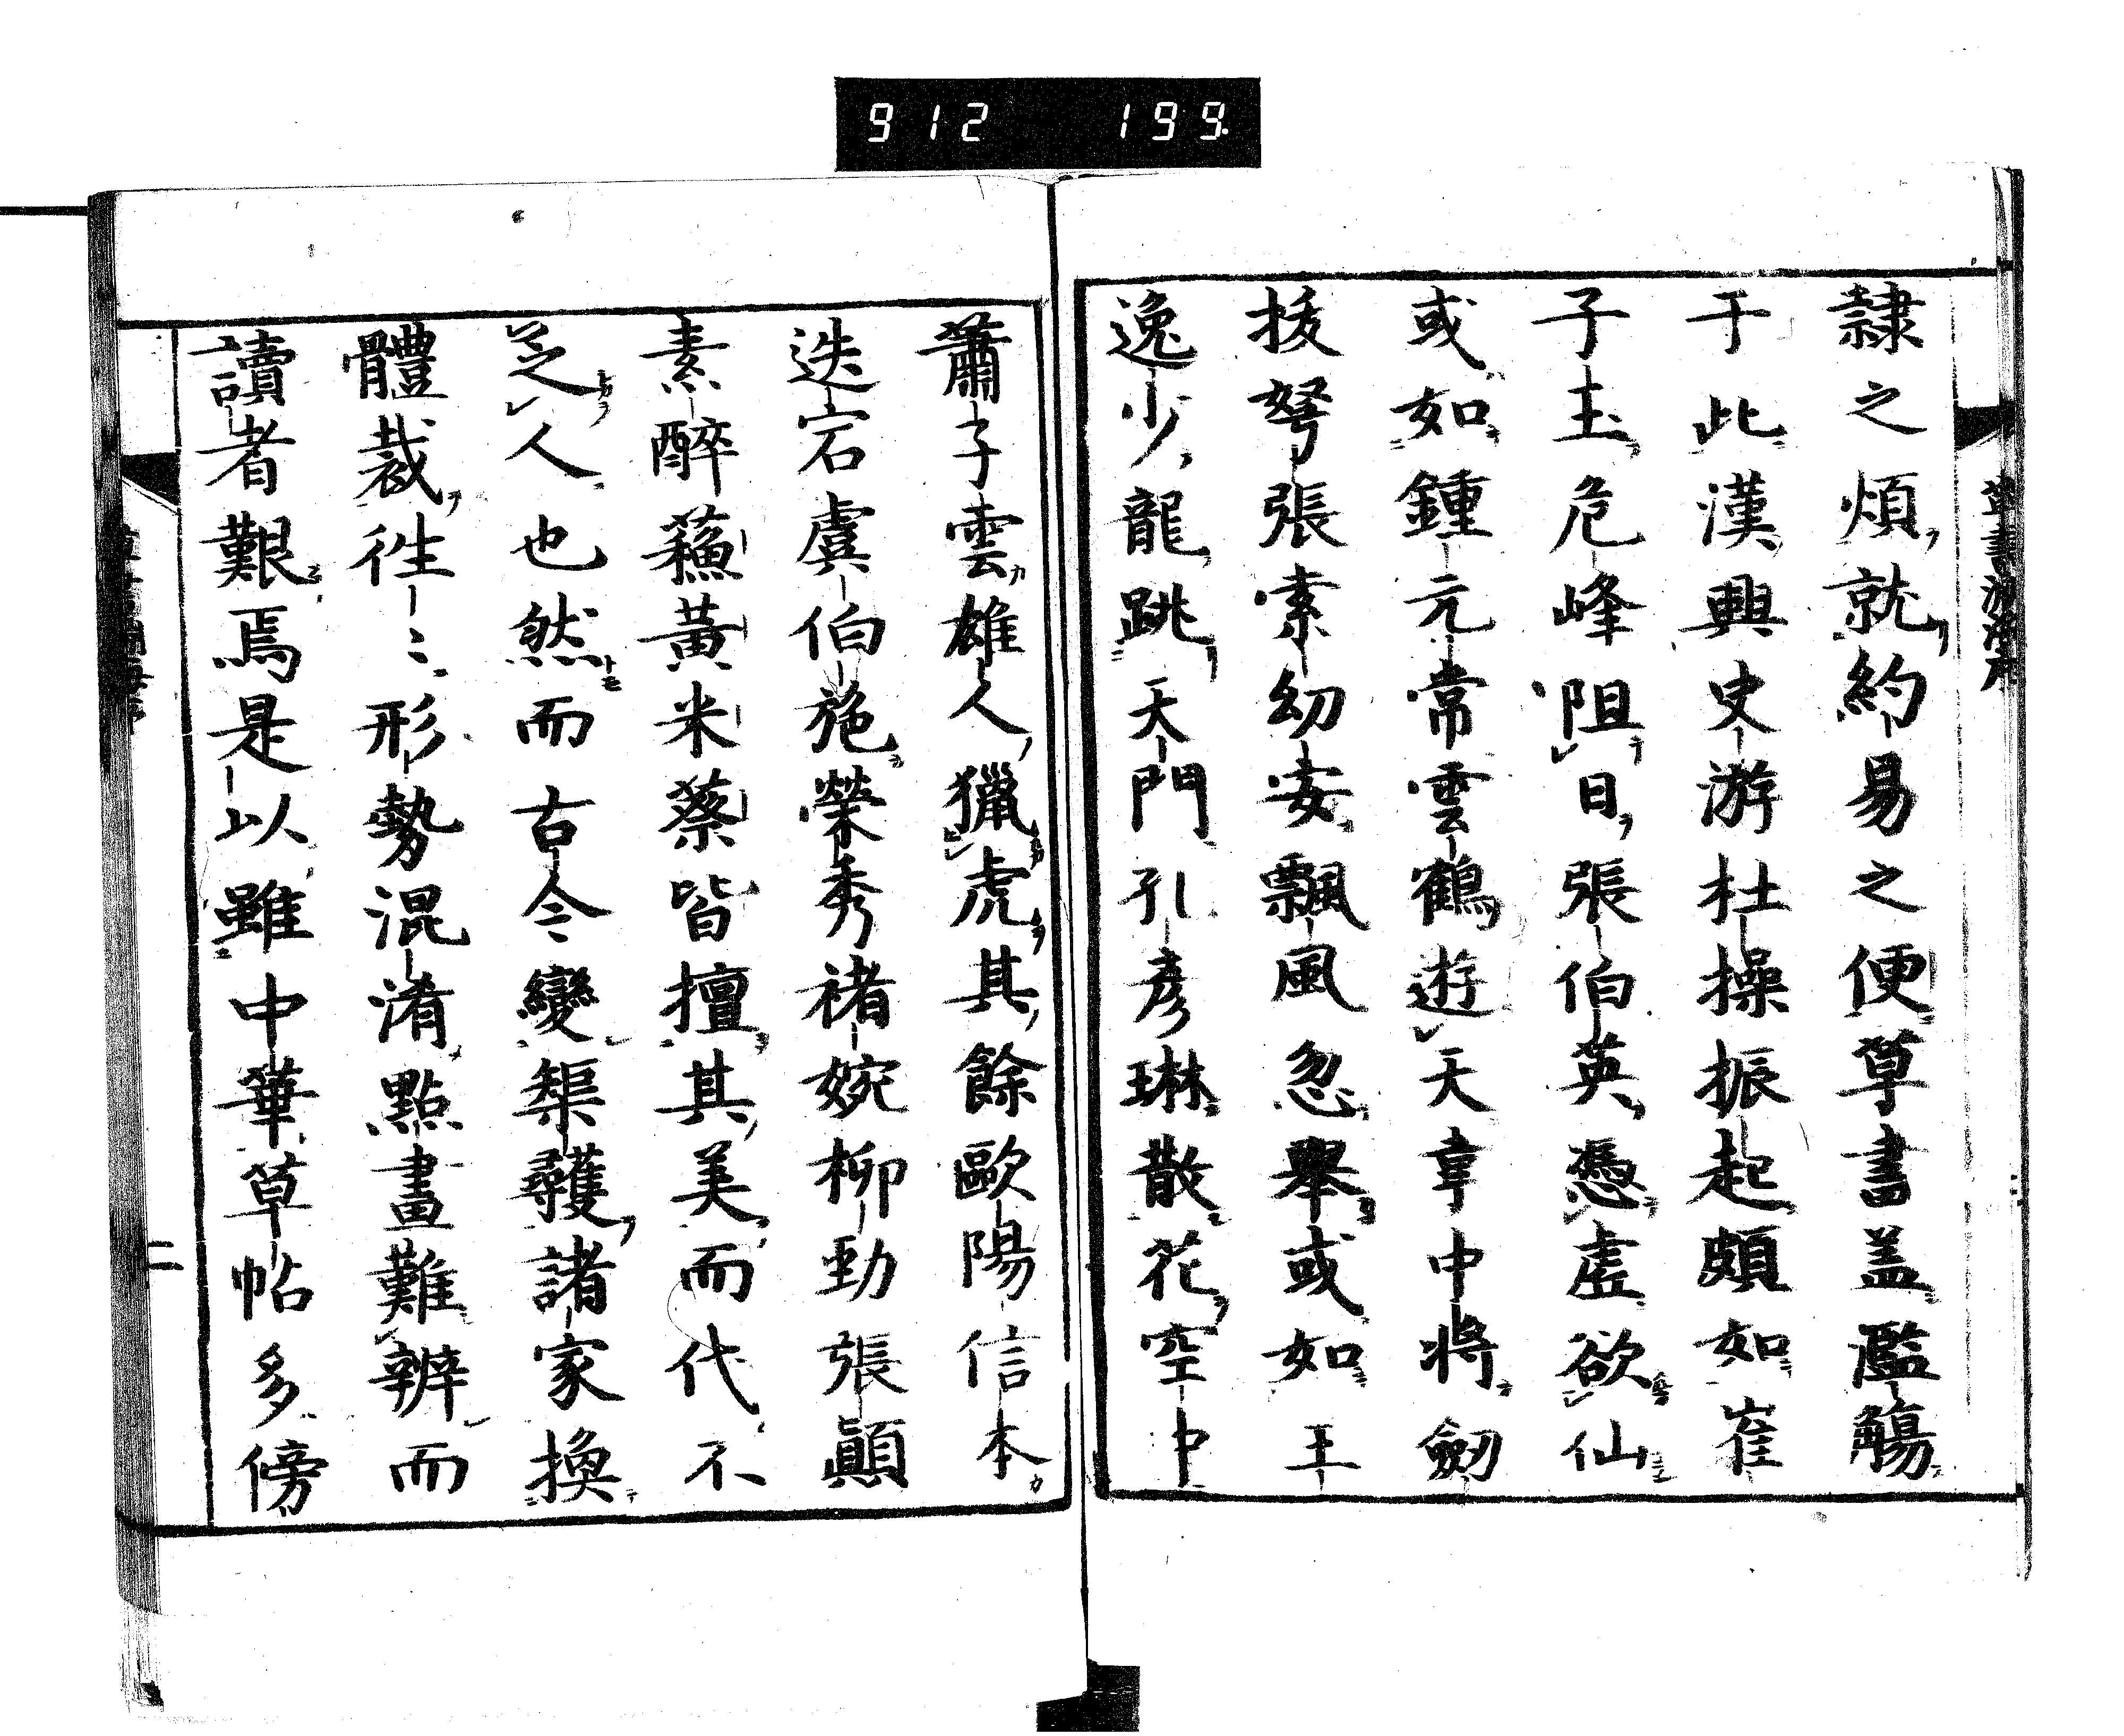 912 199.
隷之煩就約易之便草書盖濫觴
于此漢興史游杜操振起頗如崔
子玉危峰阻日張伯英憑虚欲仙
或如鍾元常雲鶴遊天韋中将劔
拔弩張索幼安飄風忽舉或如王
逸少龍跳天門孔彦琳散花空中
蕭子雲雄人獵虎其餘歐陽信本
迭宕虞伯施榮秀褚婉柳勁張顛
素醉蘓黄米蔡皆擅其美而代不
乏人也然而古今變榘矱諸家換
體裁徃〻形勢混淆點畫難辨而
讀者艱焉是以雖中華草帖多傍
二